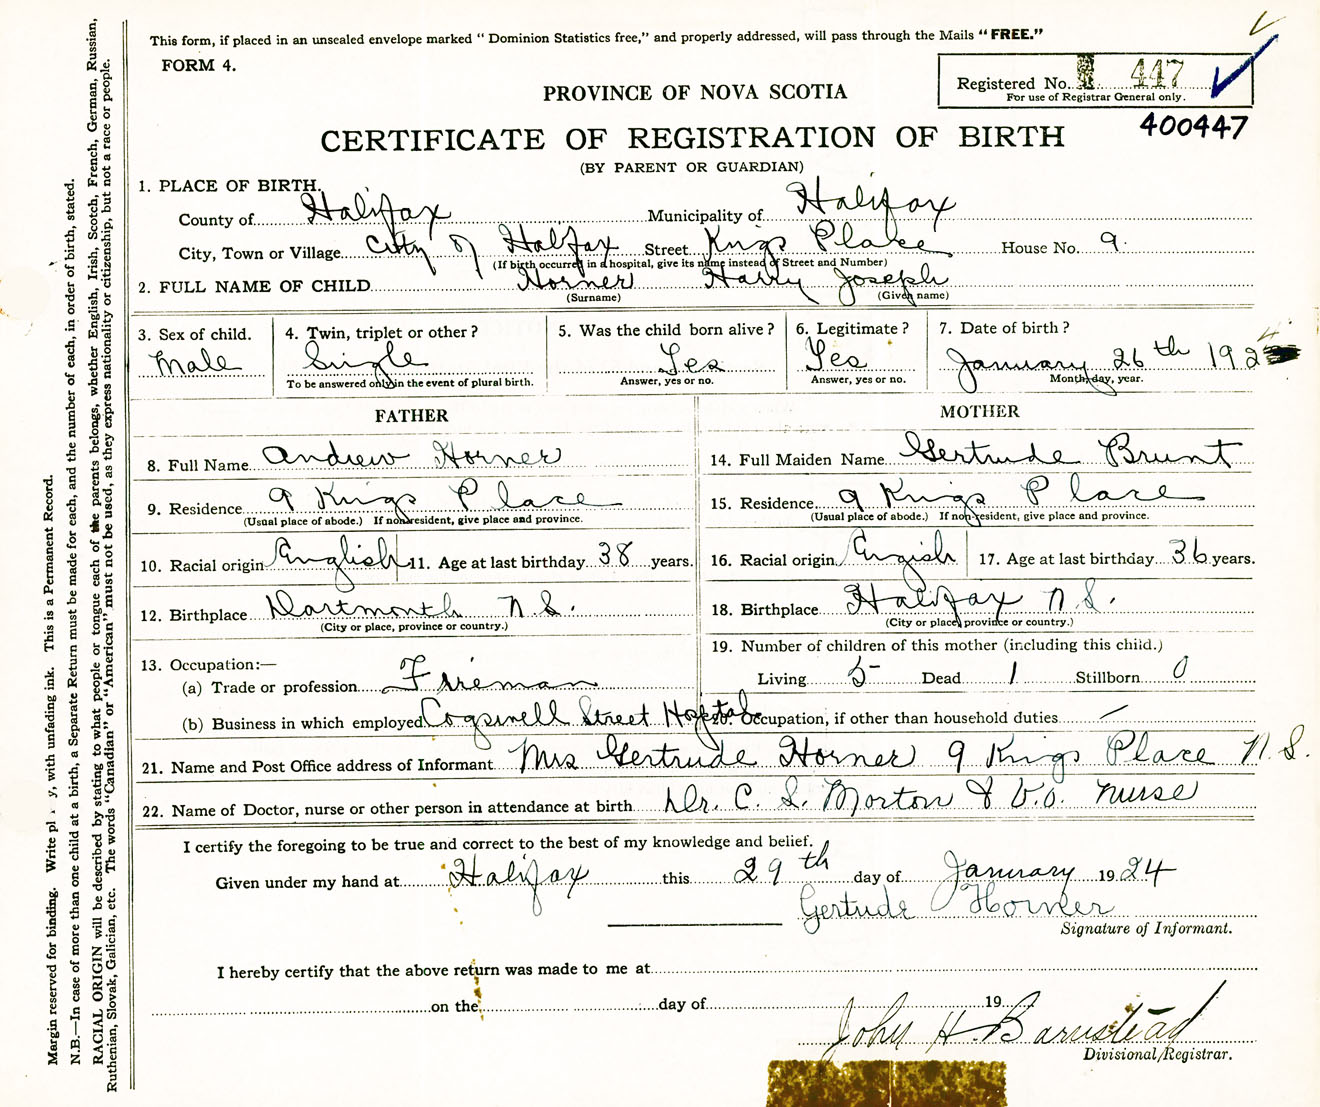 This form, if placed in an unsealed envelope marked " Dominion Statistics free," and properly addressed, will pass through the Mails "FREE."
FORM 4.
Registered No. 447
For use of Registrar General only.
400447
PROVINCE OF NOVA SCOTIA
CERTIFICATE OF REGISTRATION OF BIRTH
(BY PARENT OR GUARDIAN)
1. PLACE OF BIRTH.
County of Halifax Municipality of Halifax
City, Town or Village City of Halfax Street Kings Place House No. 9.
(If birth occurred in a hospital, give its name instead of Street and Number)
2. FULL NAME OF CHILD Horner Harry Joseph
(Surname) (Given name)
3. Sex of child. Male
4. Twin, triplet or other? Single
To be answered only in the event of plural birth.
5. Was the child born alive? Yes
Answer, yes or no.
6. Legitimate? Yes
Answer, yes or no.
7. Date of birth? January 26th 1924
Month, day, year.
FATHER
8. Full Name Andrew Horner
9. Residence 9 Kings Place
(Usual place of abode.) If non-resident, give place and province.
10. Racial origin English 11. Age at last birthday 38 years.
12. Birthplace Dartmonth N.S.
(City or place, province or country.)
13. Occupation:—
(a) Trade or profession Fireman
(b) Business in which employed Cogswell Street Hospital
MOTHER
14. Full Maiden Name Gertrude Brunt
15. Residence 9 Kings Place
(Usual place of abode.) If non-resident, give place and province.
16. Racial origin Engish 17. Age at last birthday 36 years.
18. Birthplace Halifax N.S.
(City or place, province or country.)
19. Number of children of this mother (including this child.)
Living 5 Dead 1 Stillborn 0
20. Occupation, if other than household duties —
21. Name and Post Office address of Informant Mrs Gertrude Horner 9 Kings Place N.S.
22. Name of Doctor, nurse or other person in attendance at birth Dr. C. S. Morton & V.O. Nurse
I certify the foregoing to be true and correct to the best of my knowledge and belief.
Given under my hand at Halifax this 29th day of January 1924
Gertrude Horner
Signature of Informant.
I hereby certify that the above return was made to me at
on the day of 19
John H. Barnstead
Divisional Registrar.
Margin reserved for binding. Write pl y, with unfading ink. This is a Permanent Record.
N.B.—In case of more than one child at a birth, a Separate Return must be made for each, and the number of each, in order of birth, stated.
RACIAL ORIGIN will be described by stating to what people or tongue each of the parents belongs, whether English, Irish, Scotch, French, German, Russian,
Ruthenian, Slovak, Galician, etc. The words "Canadian" or "American" must not be used, as they express nationality or citizenship, but not a race or people.